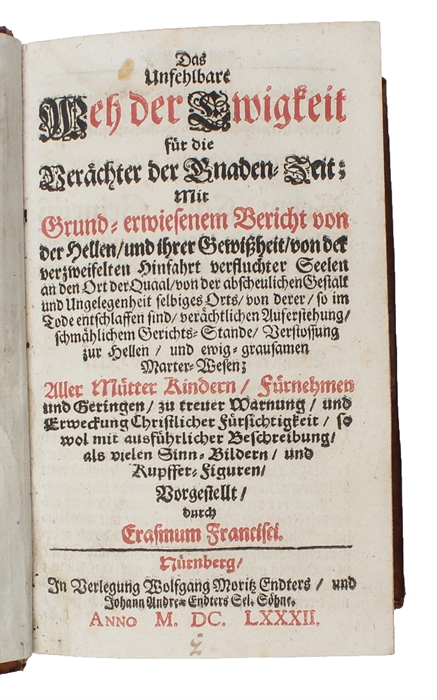 Das
Unfehlbare
Weh der Ewigkeit
für die
Verächter der Gnaden-Zeit;
Mit
Grund-erwiesenem Bericht von
der Hellen/und ihrer Gewißheit/von der
verzweifelten Hinfahrt verfluchter Seelen
an den Ort der Quaal/von der abscheulichen Gestalt
und Ungelegenheit selbiges Orts/von derer/so im
Tode entschlaffen sind/verächtlichen Auferstehung/
schmählichem Gerichts-Stande/Verstossung
zur Hellen/und ewig-grausamen
Marter-Wesen;
Aller Mütter Kindern/Fürnehmen
und Geringen/zu treuer Warnung/und
Erweckung Christlicher Fürsichtigkeit/so
wol mit ausführlicher Beschreibung/
als vielen Sinn-Bildern/und
Kupffer-Figuren/
Vorgestellt/
durch
Erasmum Francisci.
Nürnberg/
In Verlegung Wolfgang Moritz Endters/und
Johann Andreæ Endters Sel. Söhne.
ANNO M. DC. LXXXII.